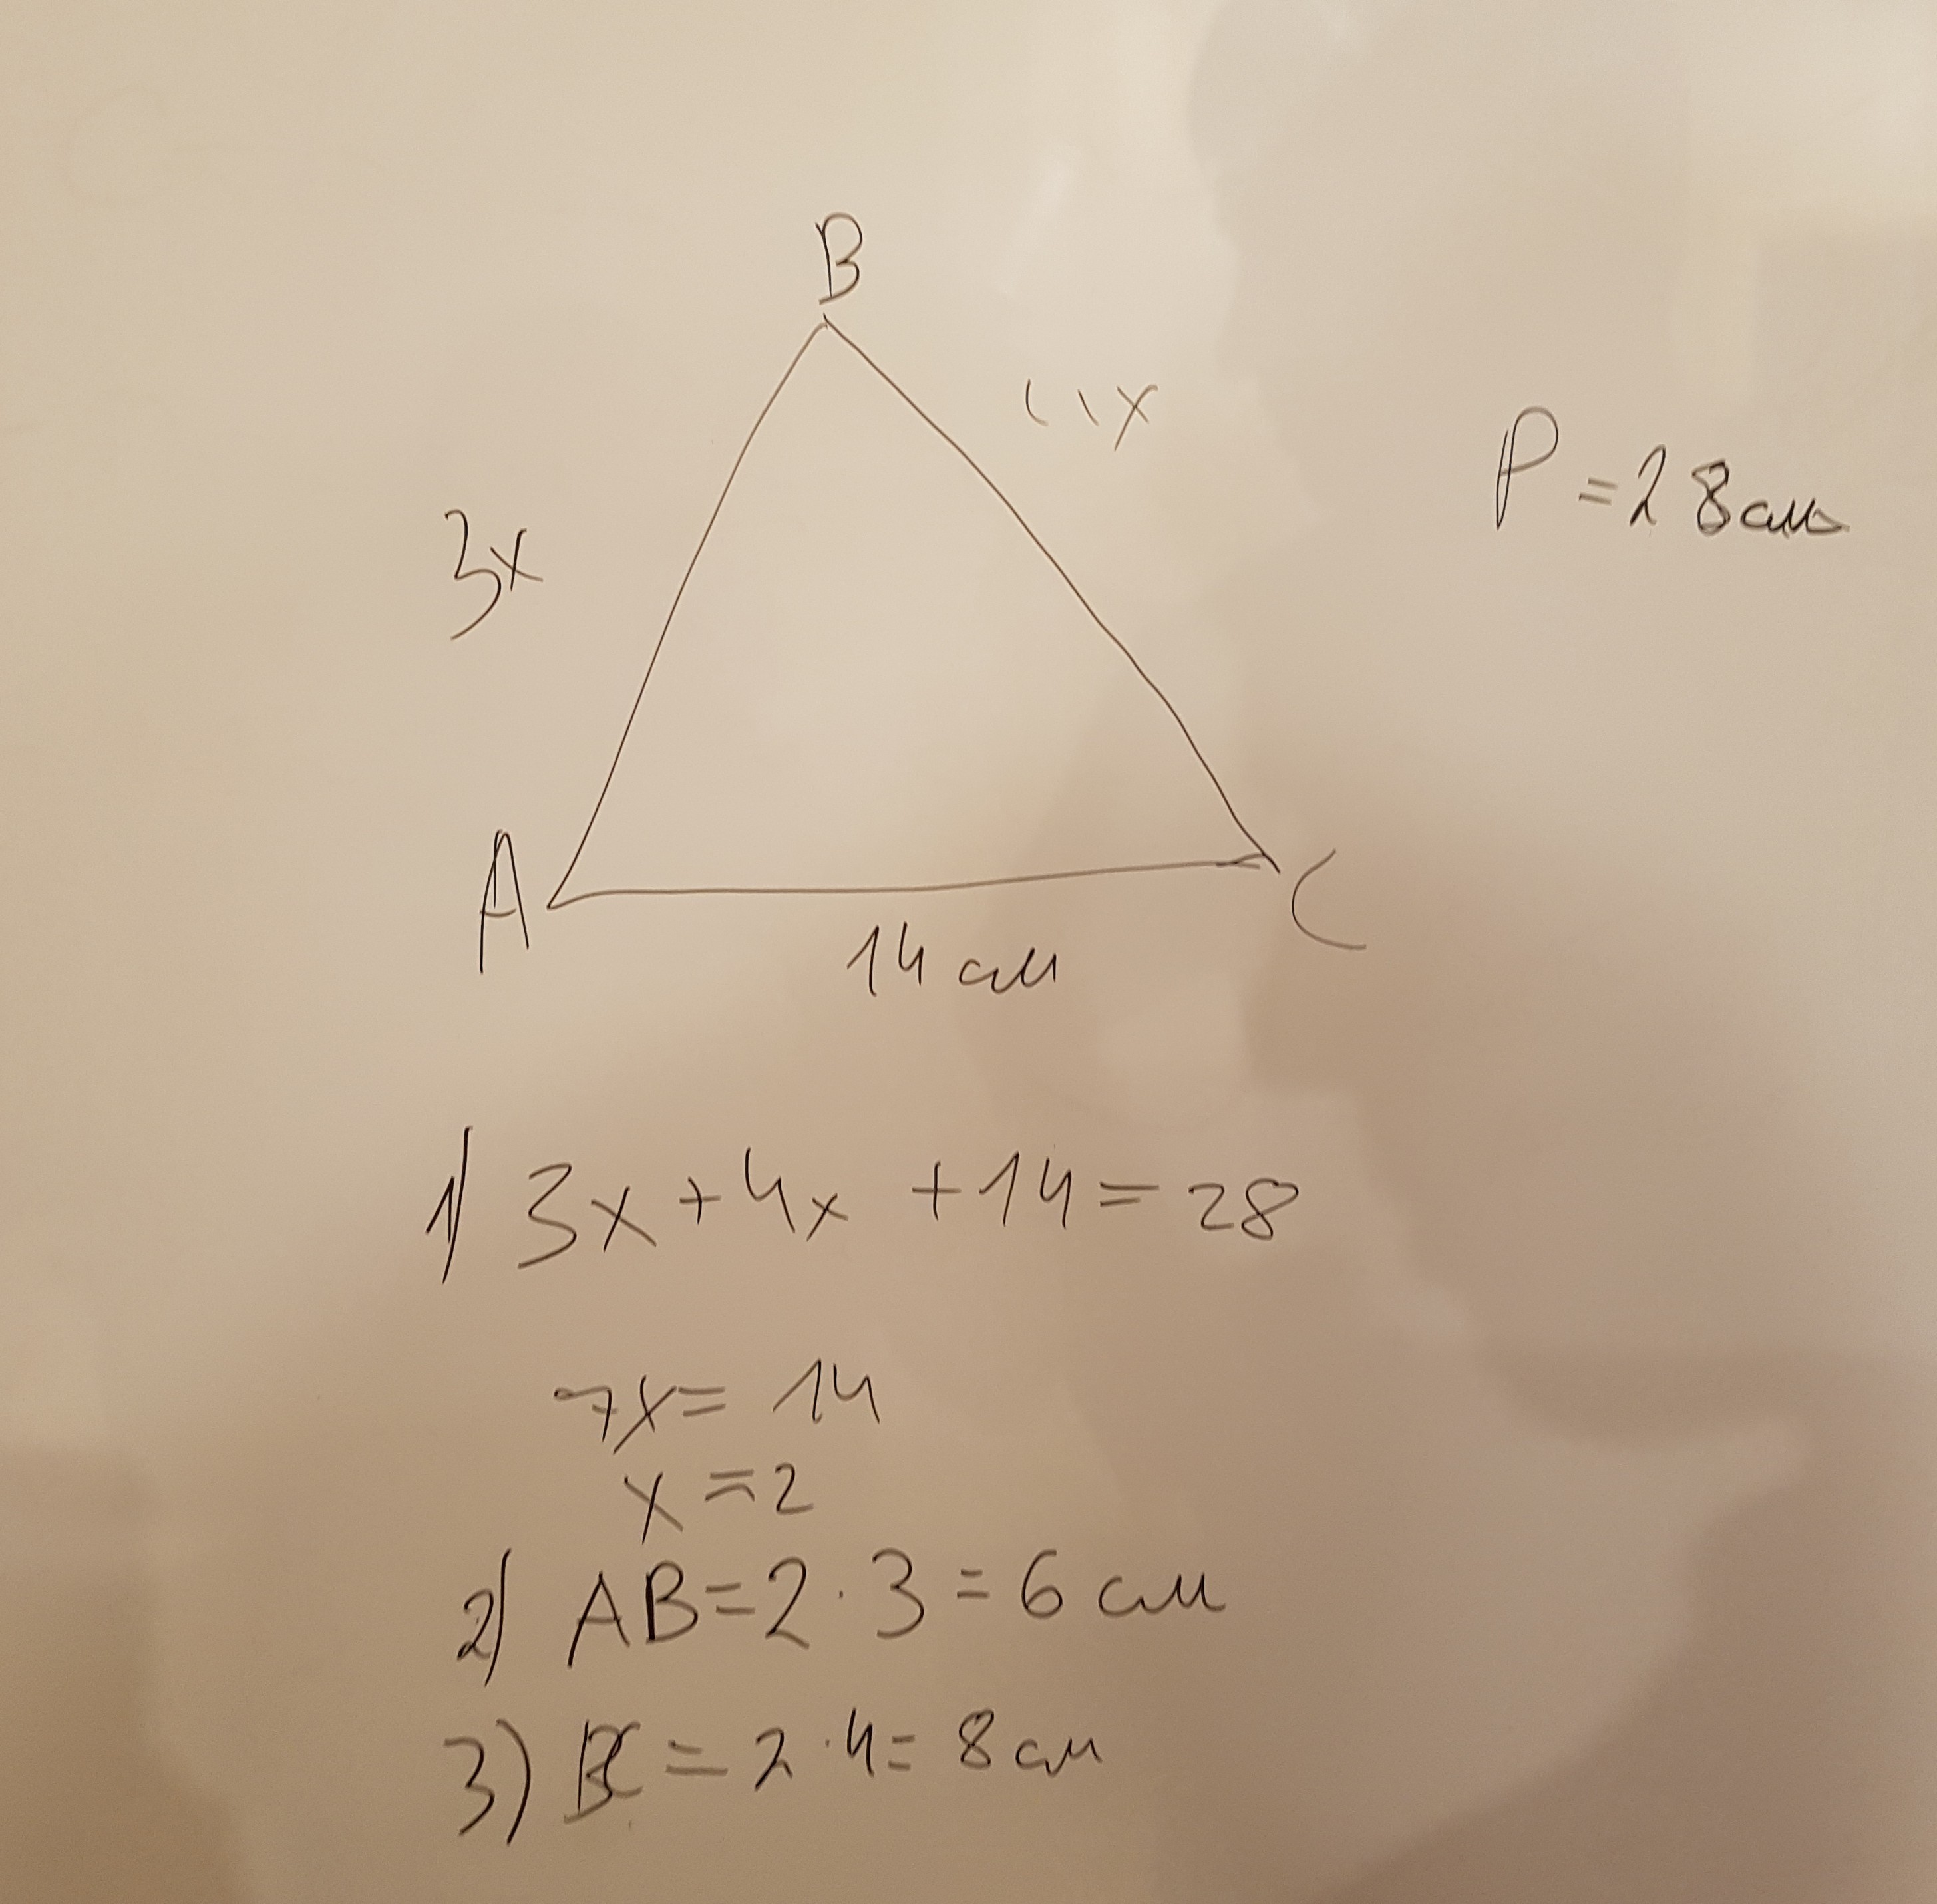 B
4x
P = 28 см
3x
A
C
14 см
1) 3x + 4x + 14 = 28
7x = 14
x = 2
2) AB = 2 · 3 = 6 см
3) BC = 2 · 4 = 8 см